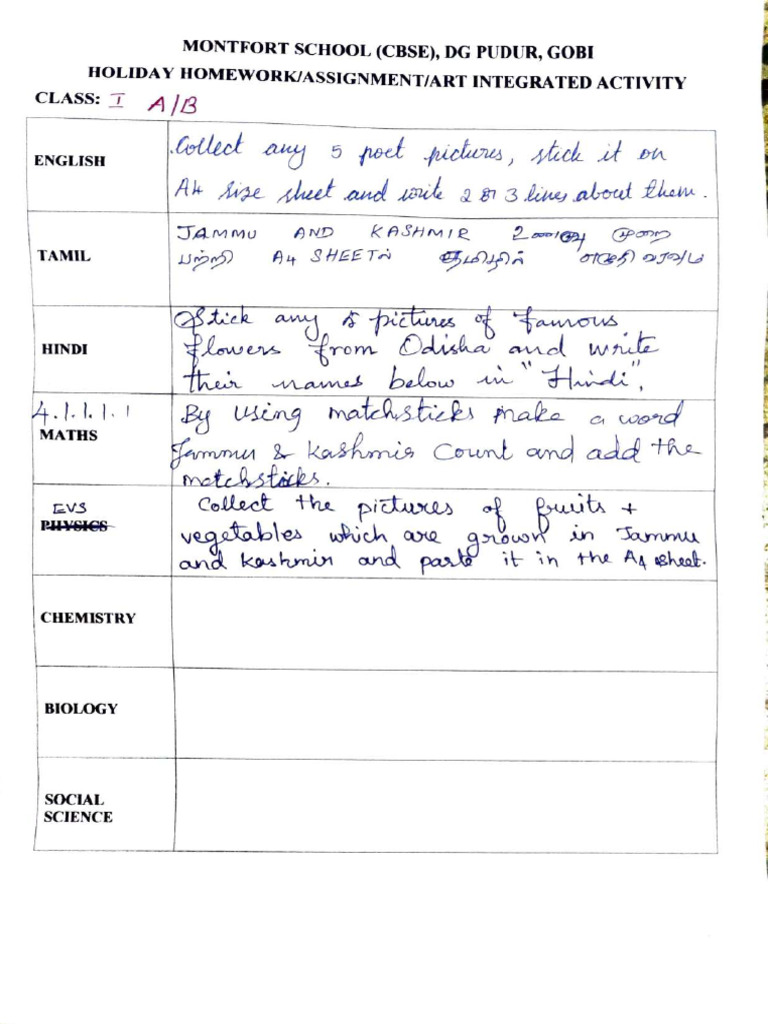 MONTFORT SCHOOL (CBSE), DG PUDUR, GOBI
HOLIDAY HOMEWORK/ASSIGNMENT/ART INTEGRATED ACTIVITY
CLASS: I A/B
ENGLISH
Collect any 5 poet pictures, stick it on
A4 size sheet and write 2 or 3 lines about them.
TAMIL
JAMMU AND KASHMIR உணவு முறை
பற்றி A4 SHEETல் தமிழில் எழுதி வரவும்
HINDI
Stick any 5 pictures of famous
flowers from Odisha and write
their names below in "Hindi".
4.1.1.1.1
MATHS
By using matchsticks make a word
Jammu & Kashmir Count and add the
matchsticks.
EVS
PHYSICS
Collect the pictures of fruits +
vegetables which are grown in Jammu
and Kashmir and paste it in the A4 sheet.
CHEMISTRY
BIOLOGY
SOCIAL
SCIENCE